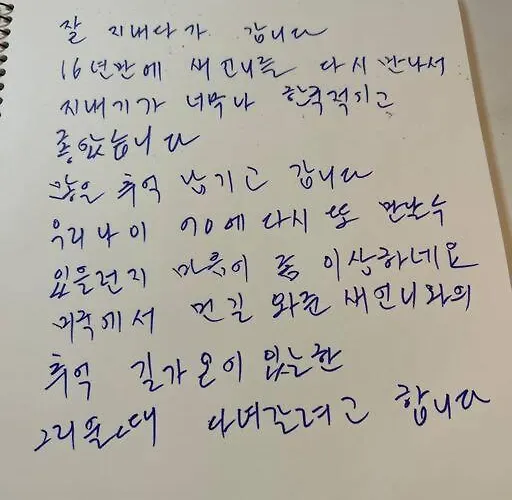 잘 지내다가 갑니다
16년만에 새언니를 다시 만나서
지내기가 너무나 환국적이고
좋았습니다
많은 추억 남기고 갑니다
우리 나이 70에 다시 또 만날수
있을런지 마음이 좀 이상하네요
미국에서 먼길 와준 새언니와의
추억 길가온이 있는한
그리울때 다녀갈려고 합니다